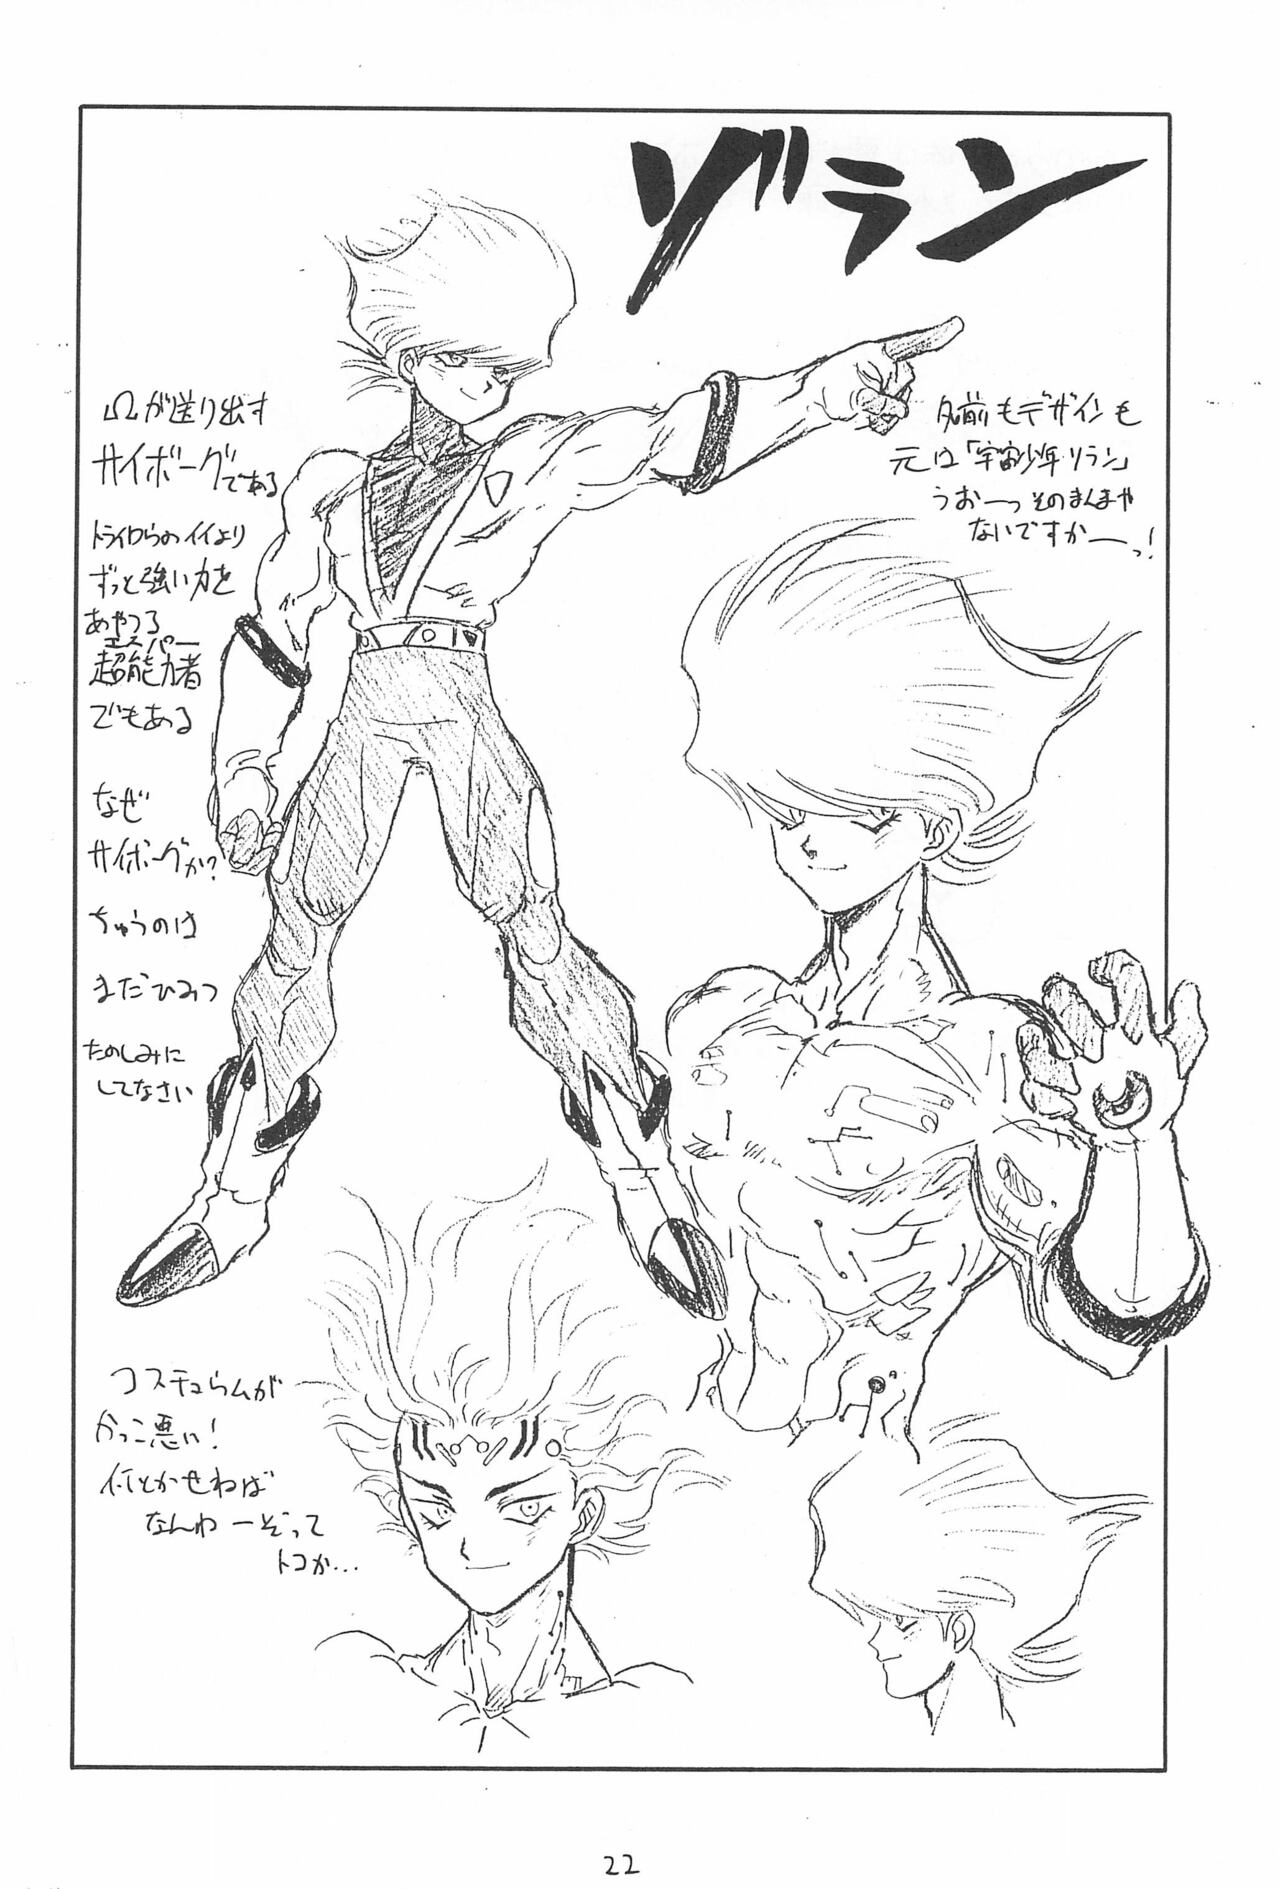 ゾラン
名前もデザインも
元は「宇宙少年ソラン」
うおーっそのまんまぢゃ
ないですかーっ!
Ωが送り出す
サイボーグである
ずっと強い力を
あやつる
エスパー
超能力者
でもある
なぜ
サイボーグか?
ちゅうのは
まだひみつ
たのしみに
してなさい
コスチュームが
かっこ悪い!
何とかせねば
なんねーぞって
トコか...
22